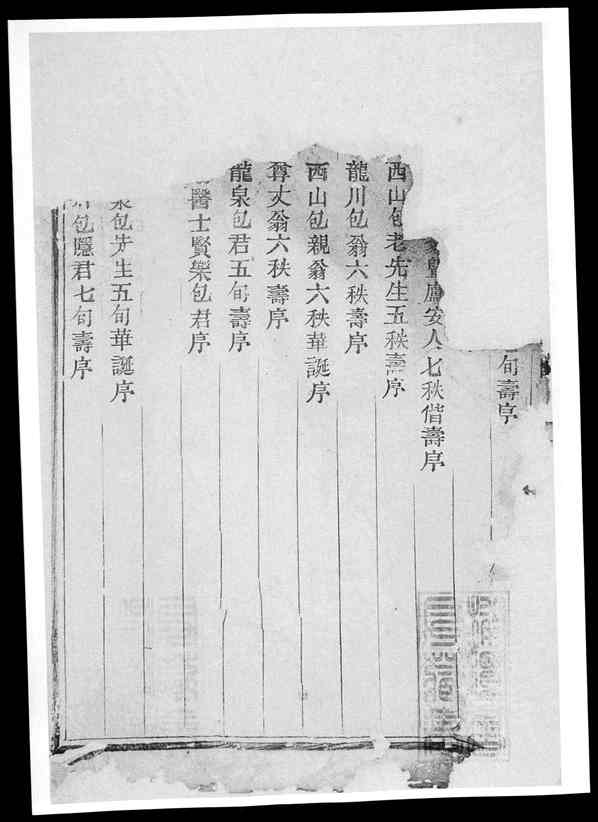 旬壽序
盧安人七秩偕壽序
西山包老先生五秩壽序
龍川包翁六秩壽序
西山包親翁六秩華誕序
尊丈翁六秩壽序
龍泉包君五旬壽序
醫士賢樂包君序
泉包先生五旬華誕序
包隱君七旬壽序